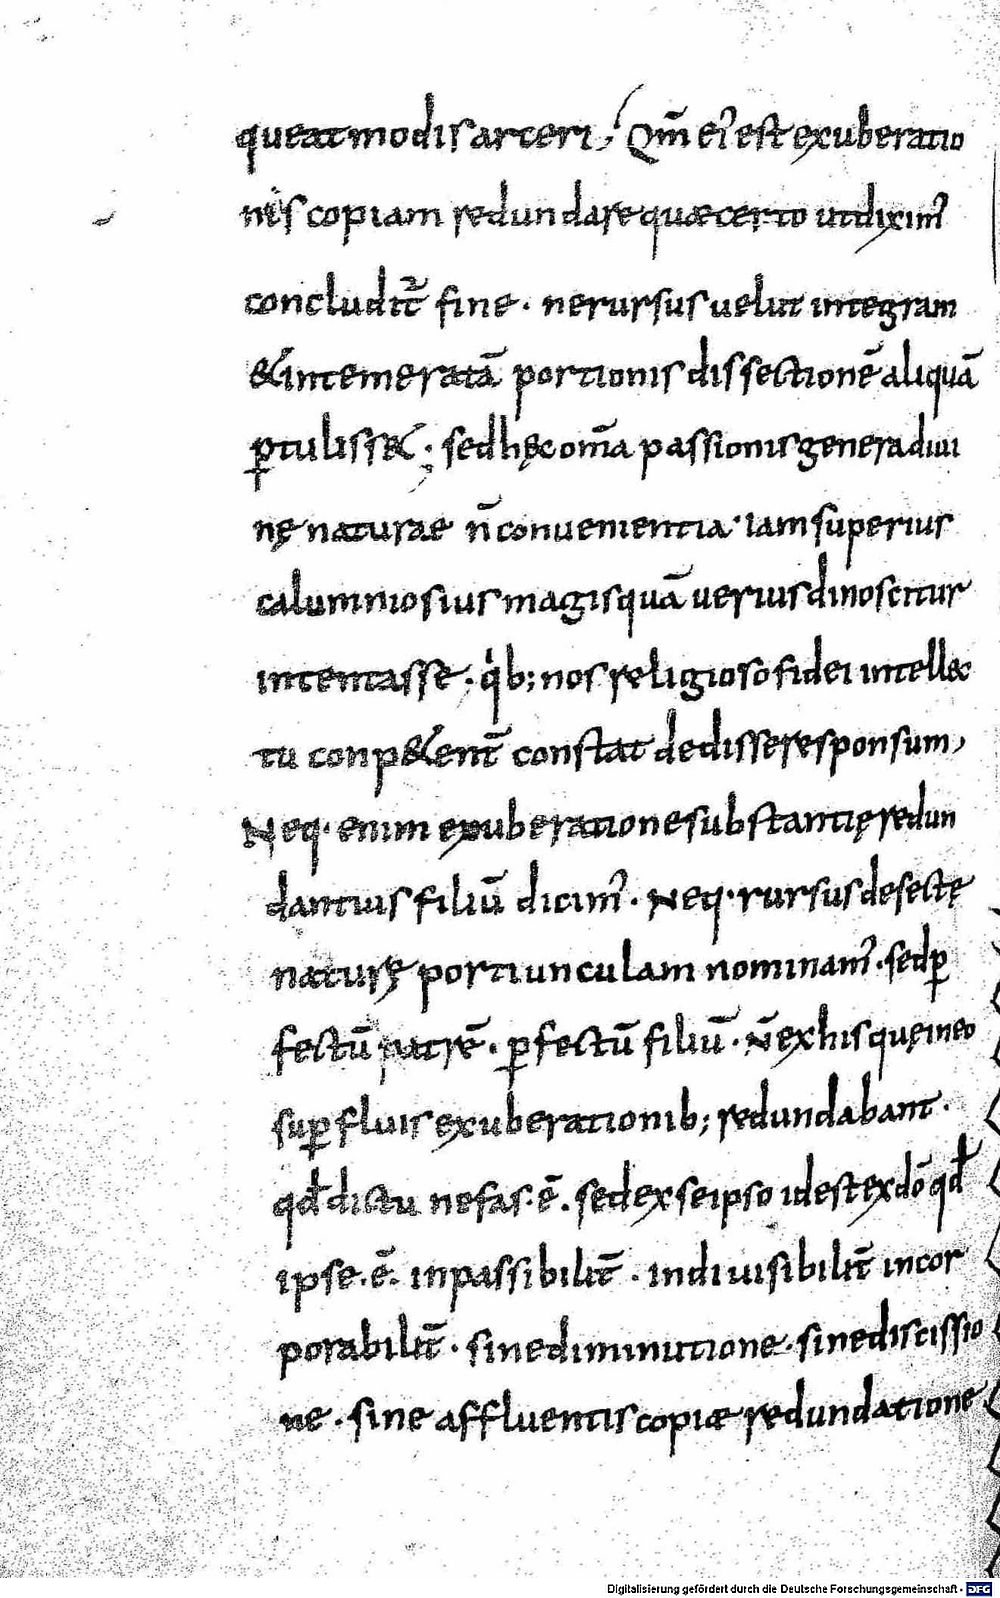 queat modis arceri; Qm̄ ei᾿ est exuberatio
nis copiam redundare quae certo ut dixim᾿
concludit᷑ fine · ne rursus uelut integram
& intemeratā portionis dissectionē aliquā
ꝑtuliss&; sed hęc om̄a passionis genera diui
nę naturae n̄ conuenientia · iam superius
calumniosius magis quā uerius dinoscitur
intentasse · qͥb; nos religioso fidei intellec
tu conp&ent̄ constat dedisse responsum,
Neq· enim exuberatione substantię redun
dantius filiū dicim᾿ · Neq· rursus desectę
naturę portiunculam nominam᾿ · sed ꝑ
fectū patrē · ꝑfectū filiū · N̄ ex his quę in eo
suꝑfluis exuberationib; redundabant ·
qđ dictu nefas · ē · sed ex se ipso id est ex dō qđ
ipse · ē · inpassibilit̄ · indiuisibilit̄ incor
porabilit̄ · sine diminutione · sine discissio
ne · sine affluentis copiae redundatione
Digitalisierung gefördert durch die Deutsche Forschungsgemeinschaft - DFG